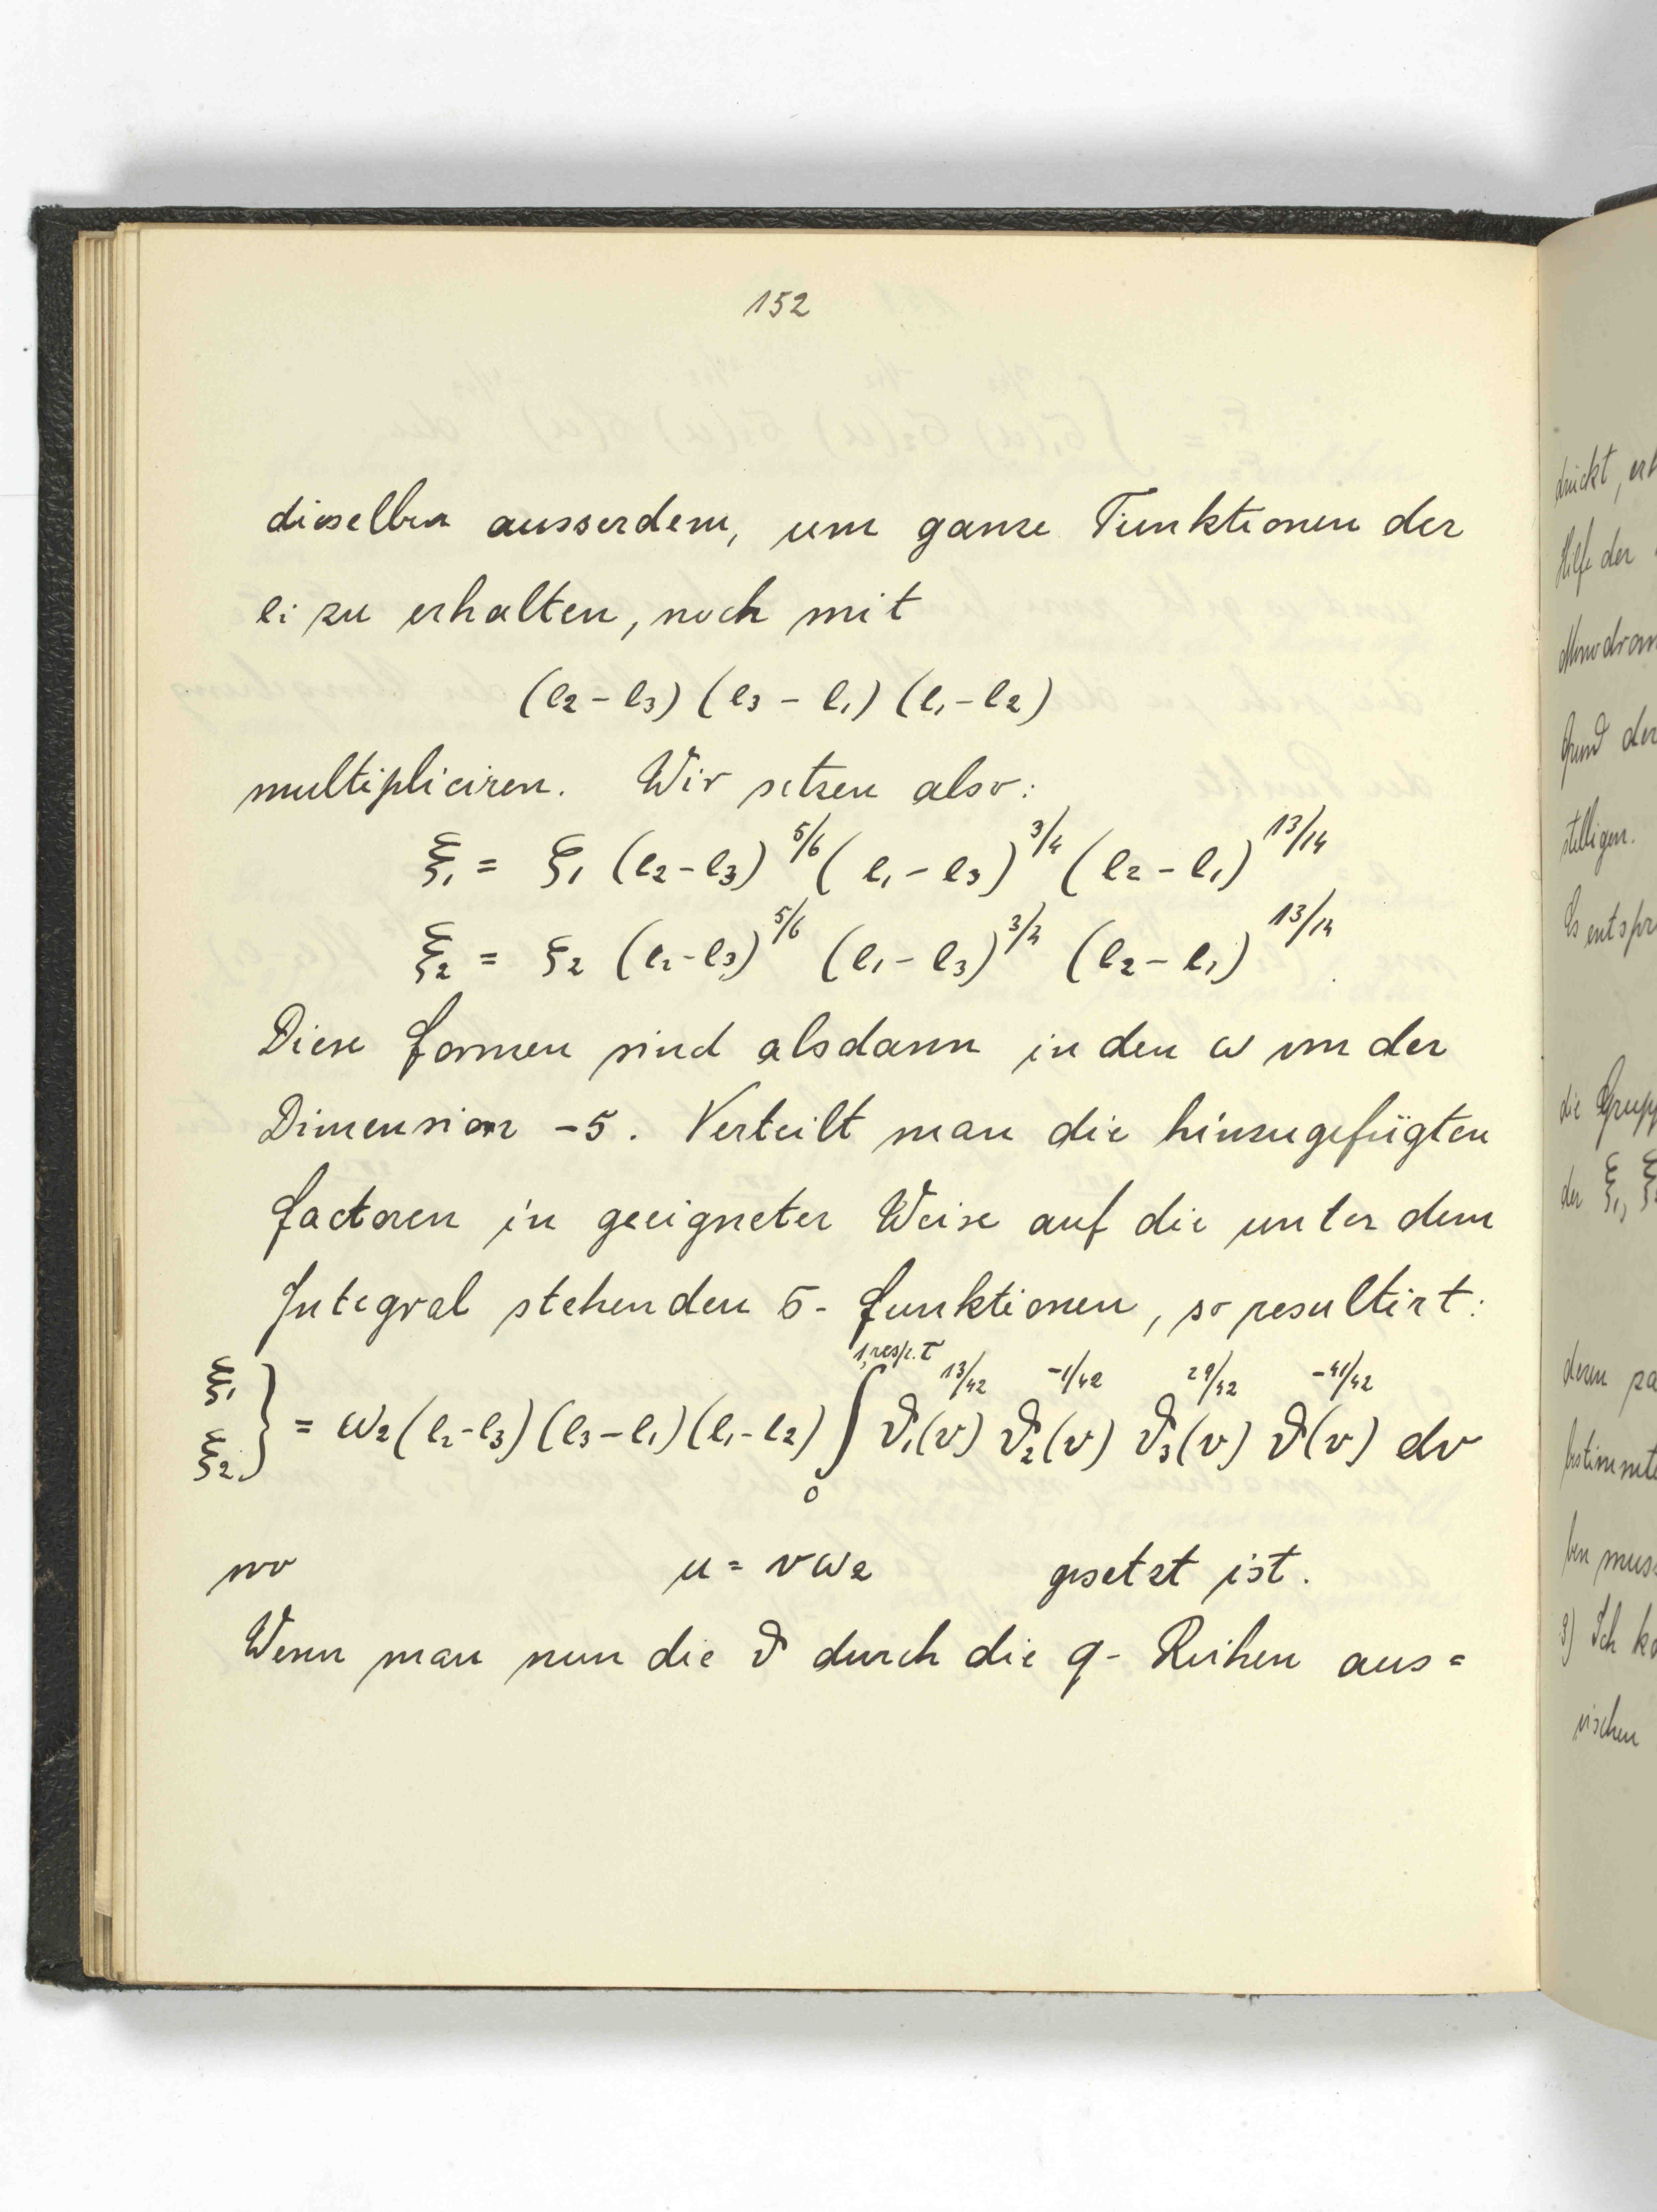 152
dieselben ausserdem, um ganze Funktionen der
ei zu erhalten, noch mit
(e2 - e3) (e3 - e1) (e1 - e2)
multipliciren. Wir setzen also:
ξ1 = ξ1 (e2 - e3)^5/6 (e1 - e3)^3/4 (e2 - e1)^13/14
ξ2 = ξ2 (e2 - e3)^5/6 (e1 - e3)^3/4 (e2 - e1)^13/14
Diese Formen sind alsdann in den ω von der
Dimension -5. Verteilt man die hinzugefügten
Factoren in geeigneter Weise auf die unter dem
Integral stehenden σ-Funktionen, so resultirt:
ξ1 ξ2 } = ω2 (e2 - e3) (e3 - e1) (e1 - e2) ∫_0^{1, resp. τ} ϑ1(v)^13/42 ϑ2(v)^-1/42 ϑ3(v)^29/42 ϑ(v)^-41/42 dv
wo u = vω2 gesetzt ist.
Wenn man nun die ϑ durch die q-Reihen aus=
drückt, er
Hilfe der
Grund der
stelligen.
Es entspr
die Grupp
der ξ1, ξ
deren
bestimmte
ben mus
3) Ich k
ischen